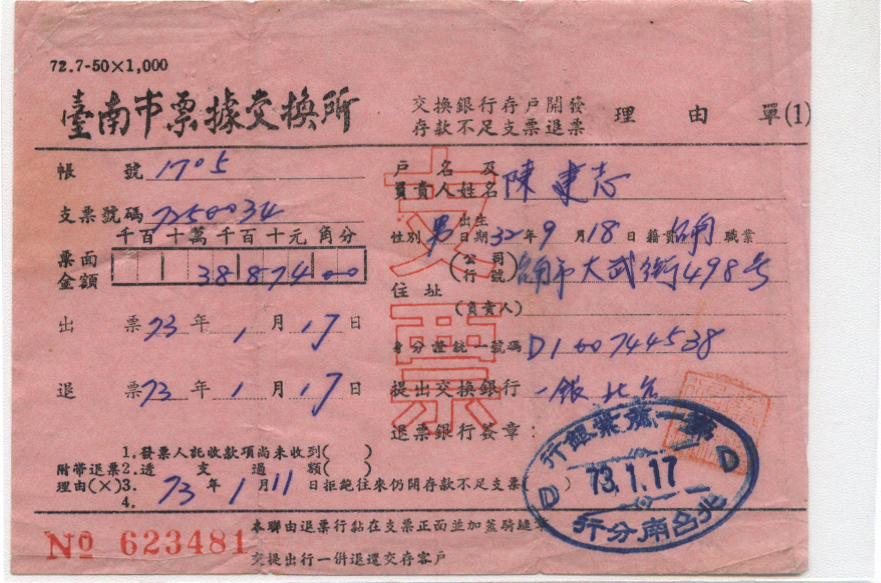 72.7-50×1,000
臺南市票據交換所
交換銀行存戶開發
存款不足支票退票 理由單(1)
帳號 1705
戶名及
負責人姓名 陳建志
支票號碼 7250034
性別 男 出生日期 32年9月18日 籍貫 台南 職業
千百十萬千百十元角分
票面金額 3887400
住址 (公司行號) 台南市大武街498號
(負責人)
出票 73年1月17日
身分證統一號碼 D100744538
退票 73年1月17日
提出交換銀行 一銀北台
退票銀行簽章:
支票
第一商業銀行
D 73.1.17 D
北台南分行
附帶退票理由(×)
1.發票人託收款項尚未收到( )
2.透支過額( )
3. 73年1月11日拒絕往來仍開存款不足支票( )
4.
№ 623481
本聯由退票行黏在支票正面並加蓋騎縫章
交提出行一併退還交存客戶